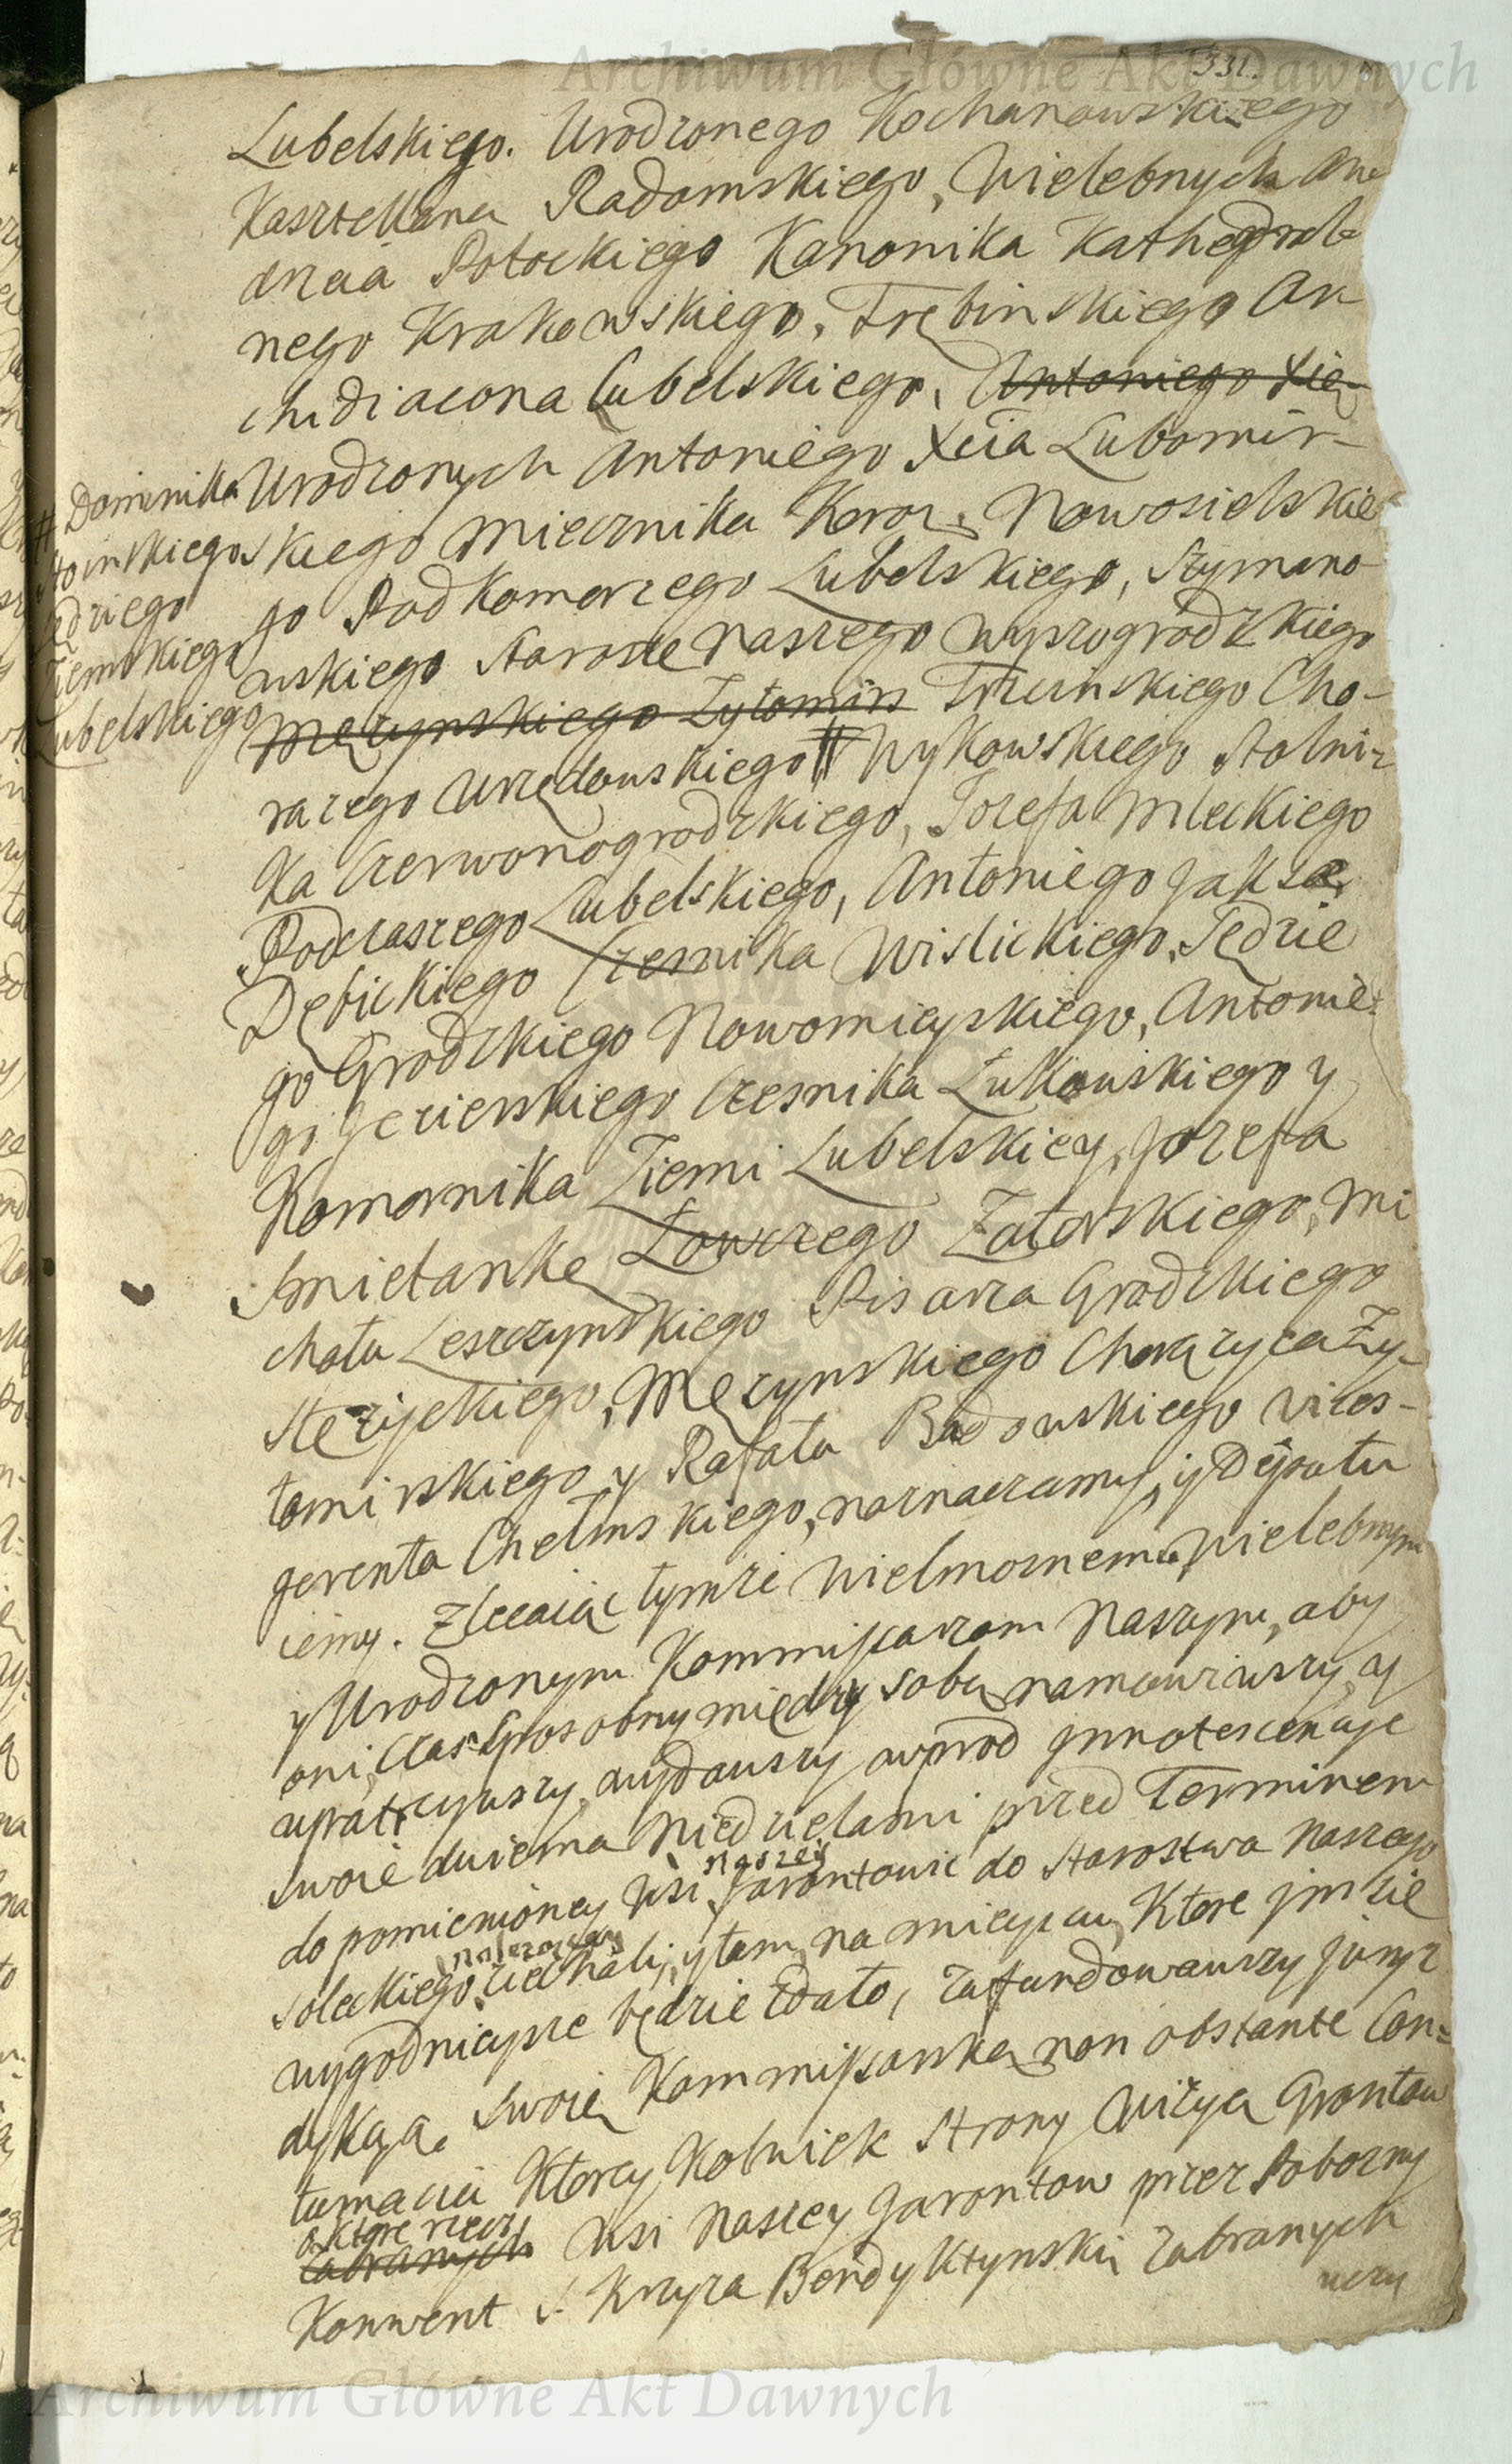 Archiwum Główne Akt Dawnych
331.
Lubelskiego. Urodzonego Kochanowskiego
Kasztellana Radomskiego, Wielebnych An
drzeia Potockiego Kanonika Kathedral
nego Krakowskiego, Trębinskiego Ar
chidiacona Lubelskiego, Antoniego Xie
Urodzonych Antoniego Xcia Lubomir-
skiego Miecznika Koron. Nowosielskie
go Podkomorzego Lubelskiego, Szymano
wskiego Staroste Naszego Wyszogrodzkiego
Męzynskiego Zytomirs Trzcinskiego Cho-
rązego Urzędowskiego # Wykowskiego Stolni-
# Dominika
Stoinskiego
Sędziego
Ziemskiego
Lubelskiego
ka Czerwonogrodzkiego, Jozefa Mleckiego
Podczaszego Lubelskiego, Antoniego Jaksę
Dębickiego Czesnika Wislickiego, Sędzie
go Grodzkiego Nowomieyskiego, Antonie-
go Jezierskiego Czesnika Łukowskiego y
Komornika Ziemi Lubelskiey, Jozefa
Smietankę Łowczego Zatorskiego, Mi
chała Leszczynskiego Pisarza Grodzkiego
Stęzyckiego, Męzynskiego Chorązyca Zy-
tomirskiego y Rafała Badowskiego Vices-
gerenta Chełmskiego, naznaczamy, y Deputu
iemy. Zlecaiąc tymze Wielmoznemu, Wielebnym
y Urodzonym Kommissarzom Naszym, aby
oni, Czas sposobny między sobą namowiwszy, y
upatrzywszy, wydawszy wprod Jnnotescencye
swoie dwiema Niedzielami przed Terminem
do pomienioney Wsi naszey Jarontowic do Starostwa Naszego
Soleckiego należącey ziechali, y tam na mieyscu, Ktore jm sie
wygodnieysze będzie zdało, zafundowawszy Jurys
dykcyą swoię Kommissarską non obstante Con-
tumacia Ktorey Kolwiek Strony Wizyą Grontow
o ktore rzecz
zabranych Wsi Naszey Jarontow przez Pobozny
Konwent S. Krzyza Benedyktynski zabranych
Archiwum Główne Akt Dawnych